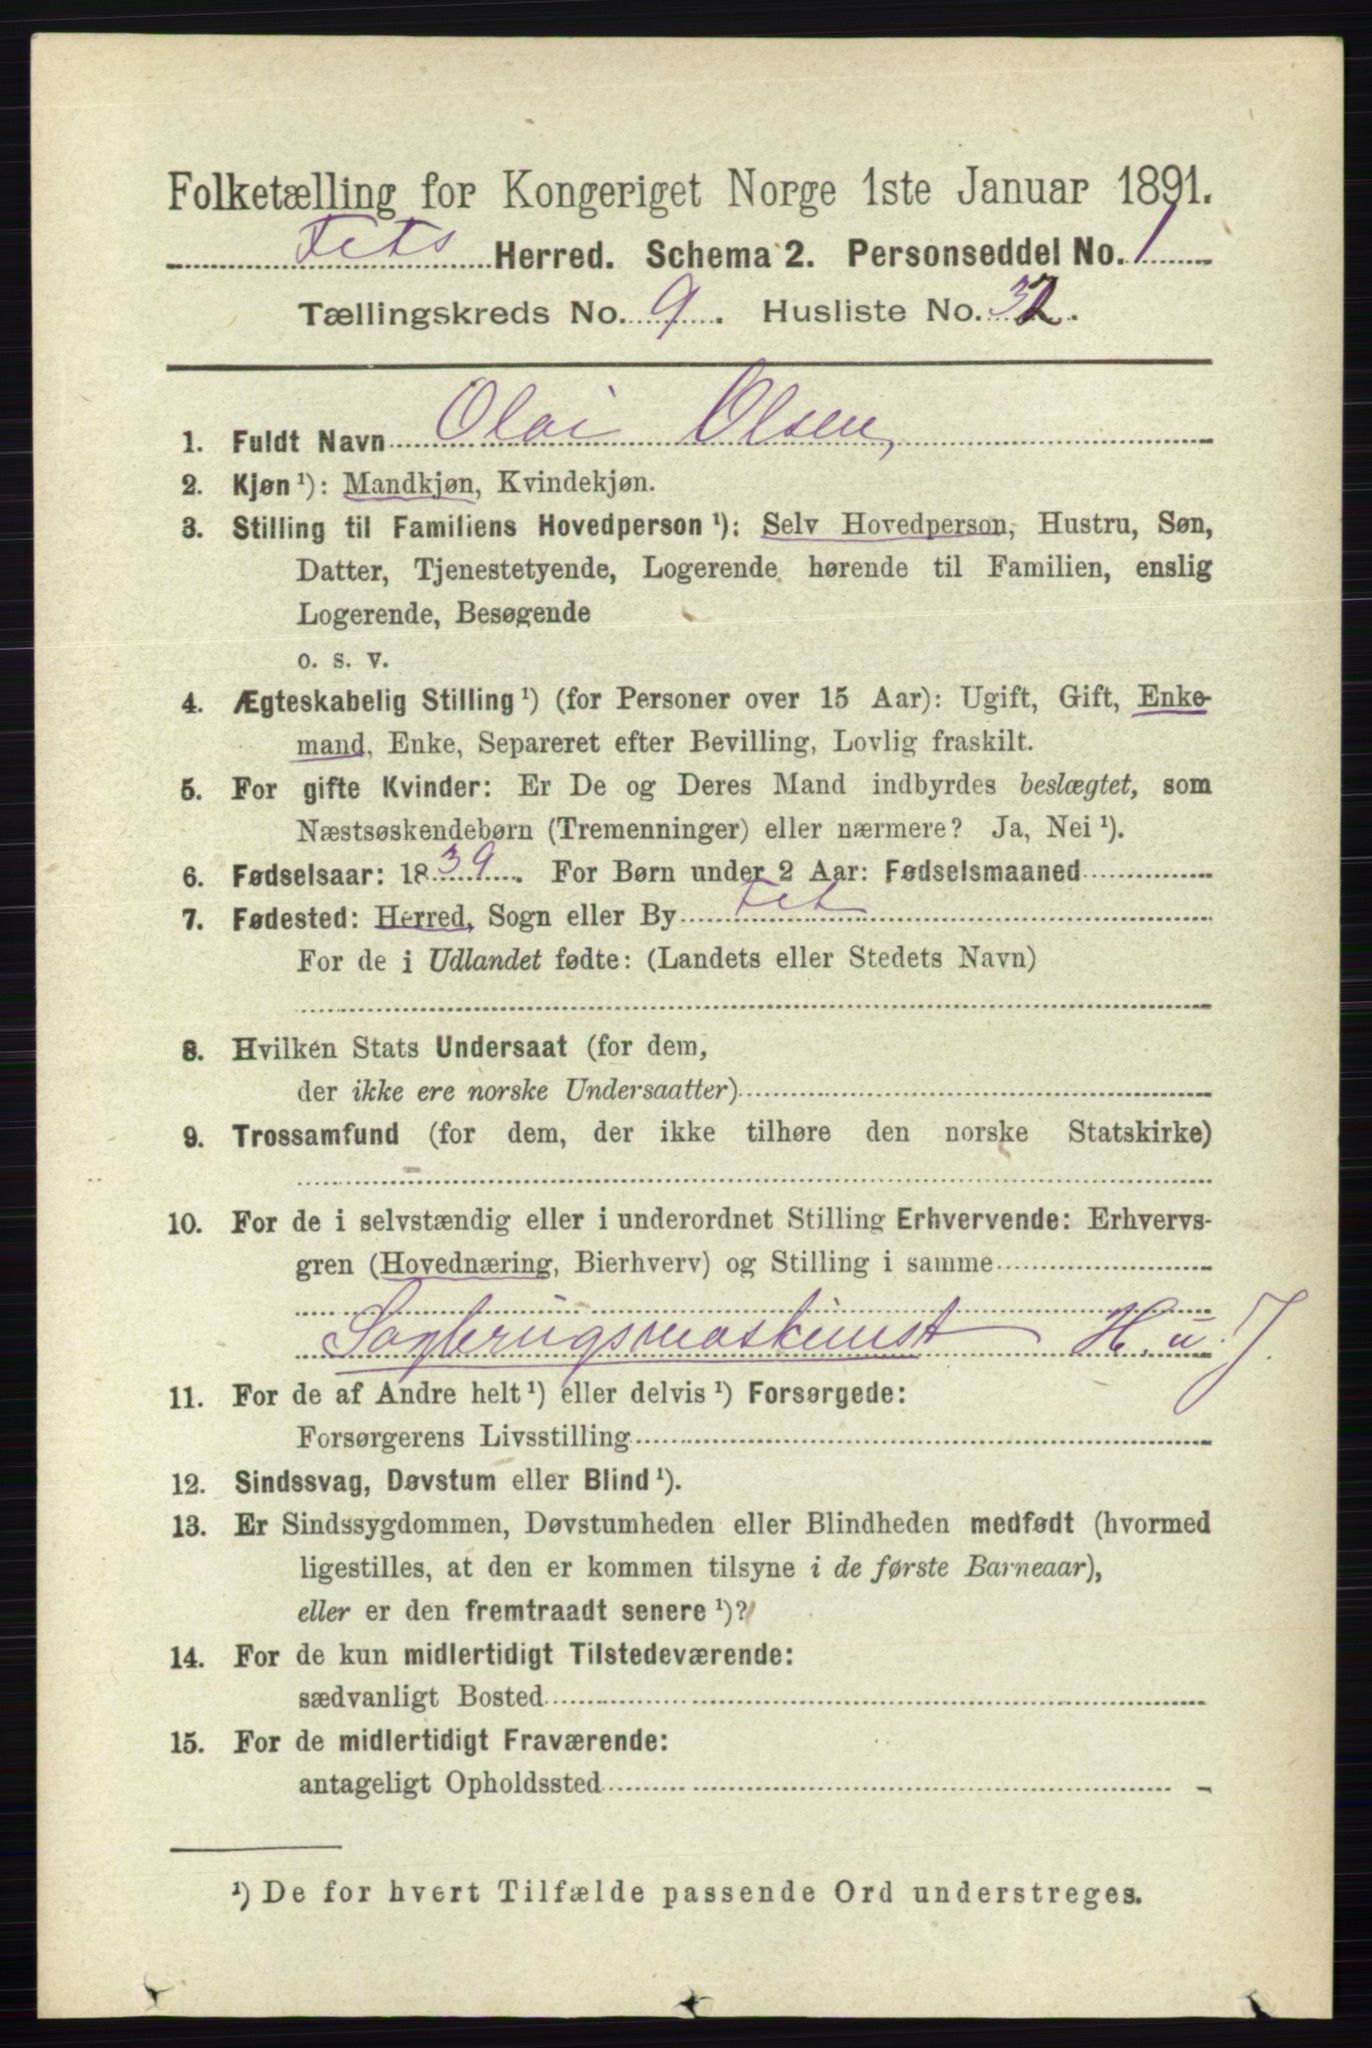 Folketælling for Kongeriget Norge 1ste Januar 1891.
Fets Herred. Schema 2. Personseddel No. 1
Tællingskreds No. 9. Husliste No. 32.
1. Fuldt Navn Olai Olsen,
2. Kjøn ¹): Mandkjøn, Kvindekjøn.
3. Stilling til Familiens Hovedperson ¹): Selv Hovedperson, Hustru, Søn,
Datter, Tjenestetyende, Logerende hørende til Familien, enslig
Logerende, Besøgende
o. s. v.
4. Ægteskabelig Stilling ¹) (for Personer over 15 Aar): Ugift, Gift, Enke-
mand, Enke, Separeret efter Bevilling, Lovlig fraskilt.
5. For gifte Kvinder: Er De og Deres Mand indbyrdes beslægtet, som
Næstsøskendebørn (Tremenninger) eller nærmere? Ja, Nei ¹).
6. Fødselsaar: 1839. For Børn under 2 Aar: Fødselsmaaned
7. Fødested: Herred, Sogn eller By Fet
For de i Udlandet fødte: (Landets eller Stedets Navn)
8. Hvilken Stats Undersaat (for dem,
der ikke ere norske Undersaatter)
9. Trossamfund (for dem, der ikke tilhøre den norske Statskirke)
10. For de i selvstændig eller i underordnet Stilling Erhvervende: Erhvervs-
gren (Hovednæring, Bierhverv) og Stilling i samme
Sagbrugsmaskinist H. u. J.
11. For de af Andre helt ¹) eller delvis ¹) Forsørgede:
Forsørgerens Livsstilling
12. Sindssvag, Døvstum eller Blind ¹).
13. Er Sindssygdommen, Døvstumheden eller Blindheden medfødt (hvormed
ligestilles, at den er kommen tilsyne i de første Barneaar),
eller er den fremtraadt senere ¹)?
14. For de kun midlertidigt Tilstedeværende:
sædvanligt Bosted
15. For de midlertidigt Fraværende:
antageligt Opholdssted
¹) De for hvert Tilfælde passende Ord understreges.